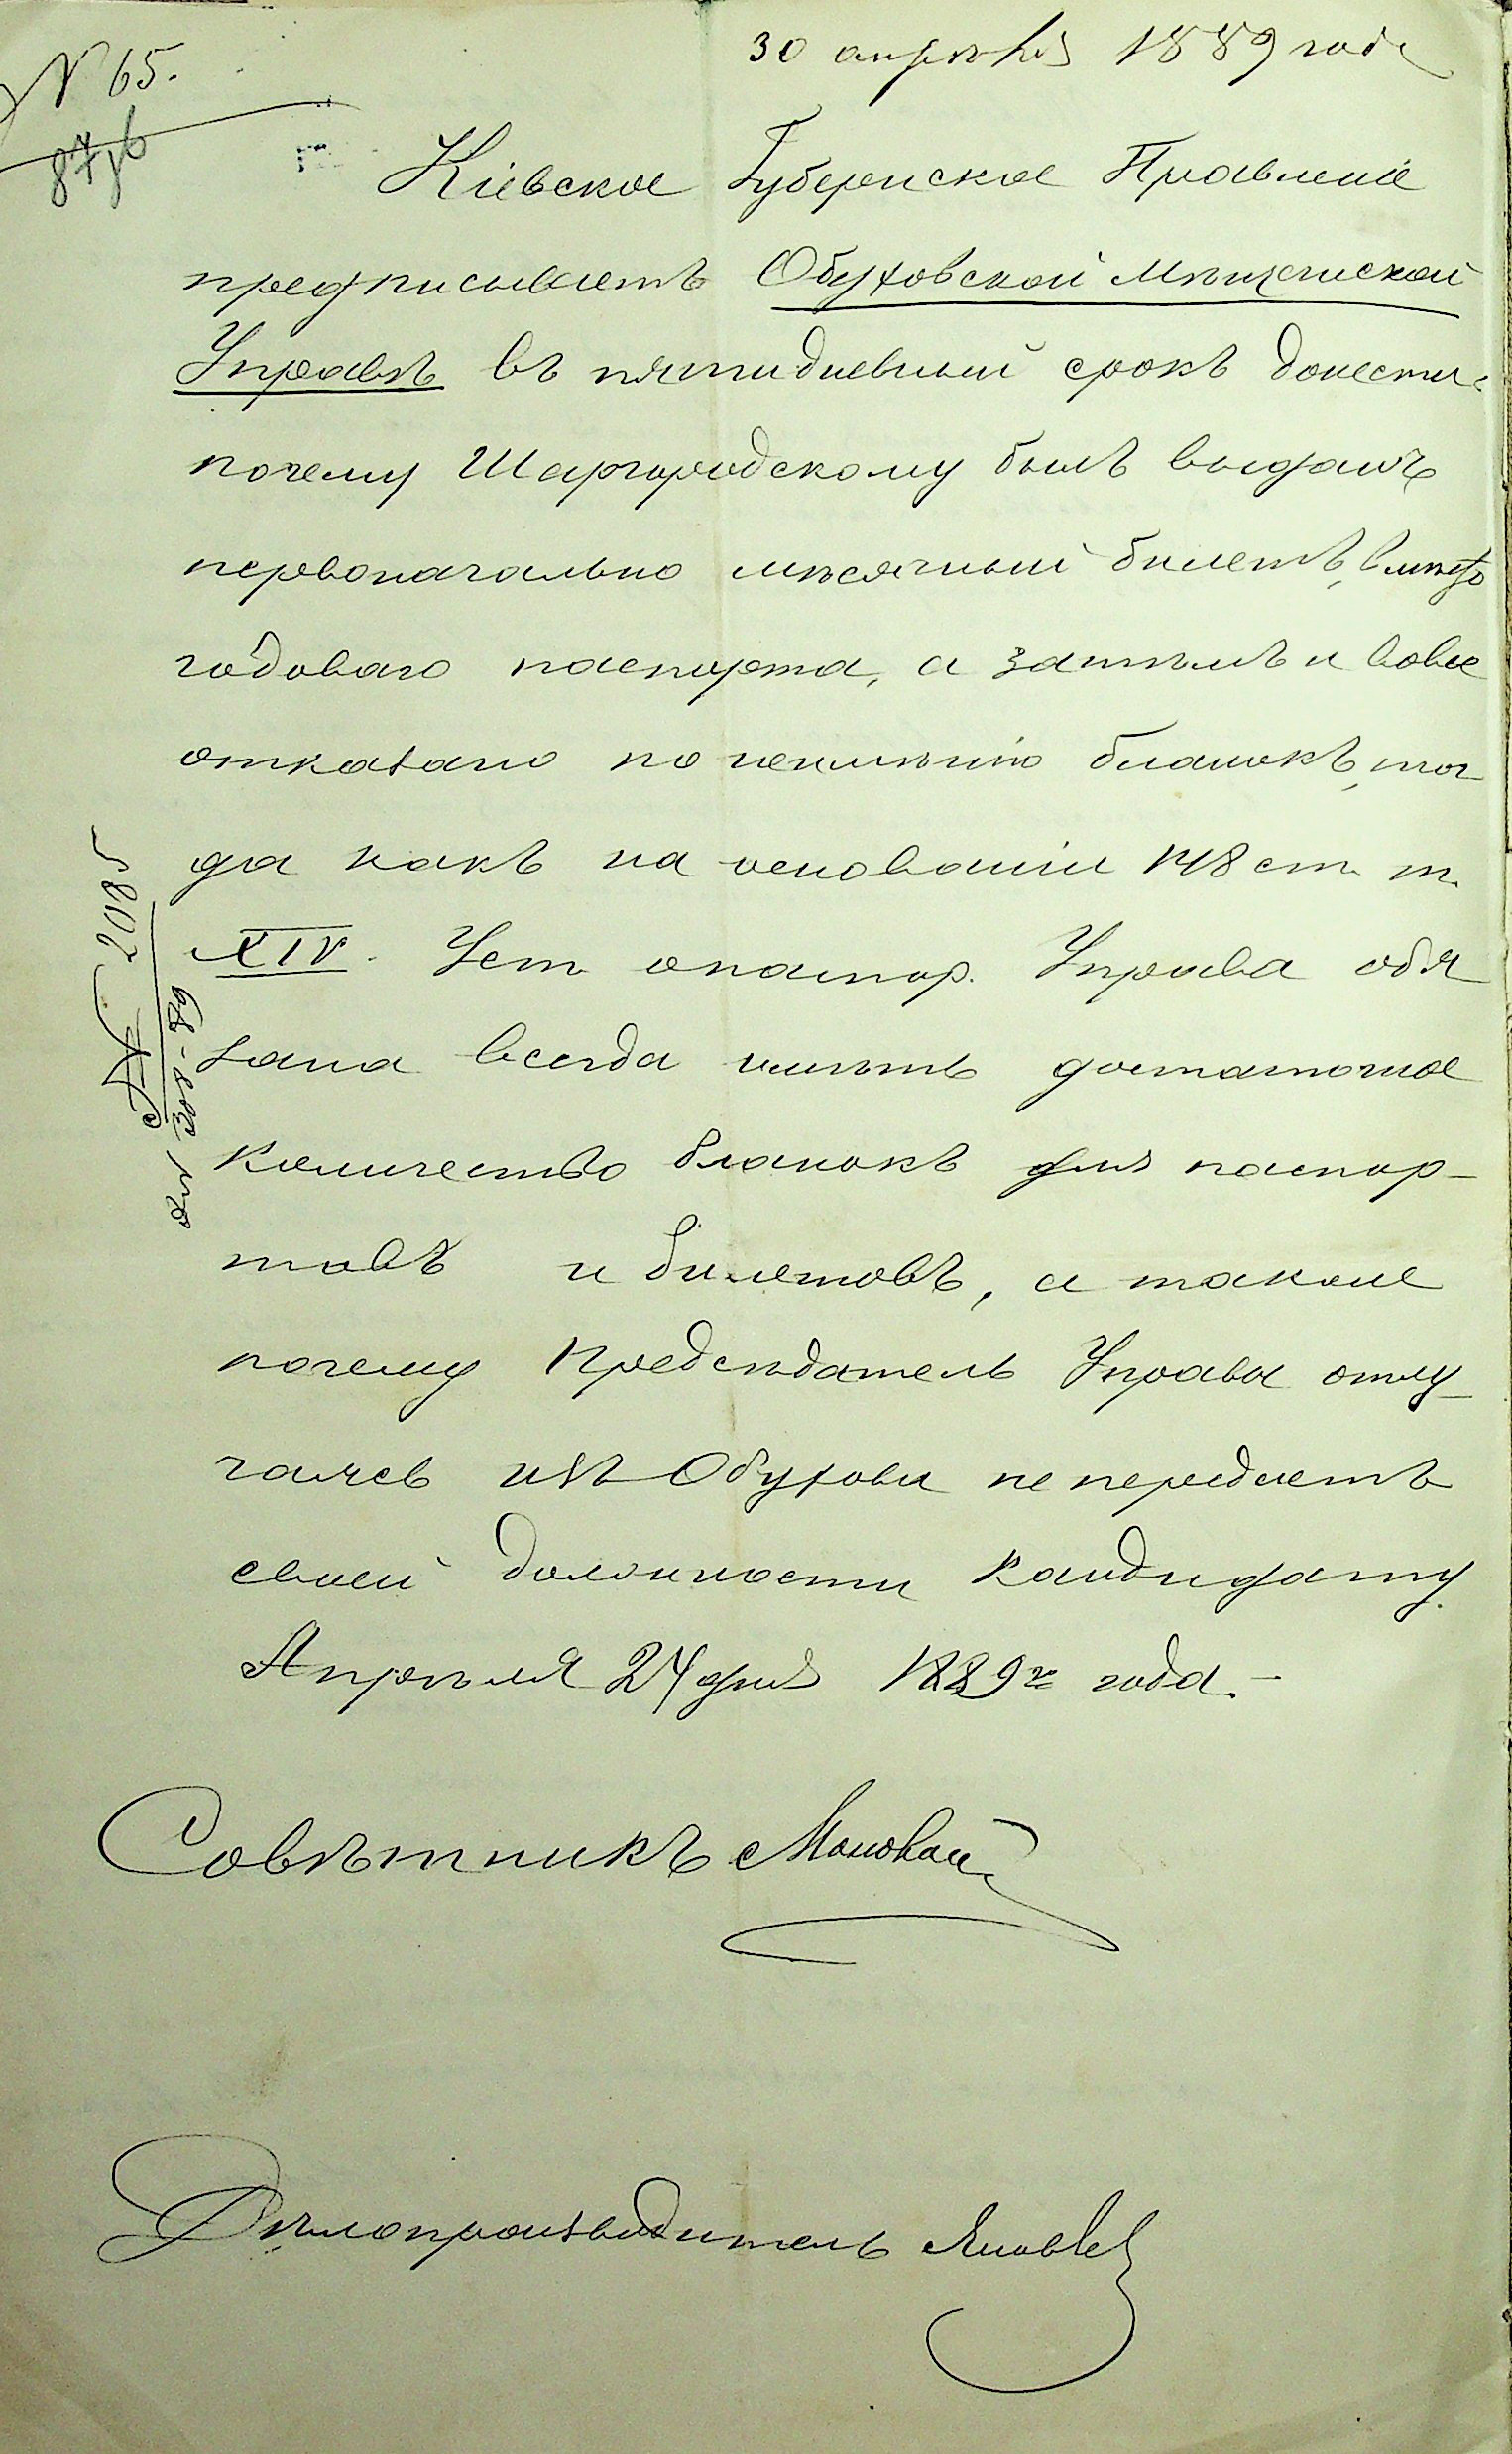 № 65.
30 апрѣля 1889 года
Кіевское Губернское Правленіе
предписываетъ Обуховской Мѣщанской
Управѣ въ пятидневный срокъ донести
почему Шаргородскому былъ выданъ
первоначально мѣсячный билетъ, вмѣсто
годоваго паспорта, а затѣмъ и вовсе
отказано по неимѣнію бланокъ, тог
да какъ на основаніи 148 ст. т.
XIV. Уст. о паспор. Управа обя
зана всегда имѣть достаточное
количество бланокъ для паспор-
товъ и билетовъ, а также
почему Предсѣдатель Управы отлу-
чаясь изъ Обухова не передаетъ
своей должности кандидату.
Апрѣля 24 дня 1889 го года.-
№ 2085
Совѣтникъ
Дѣлопроизводитель